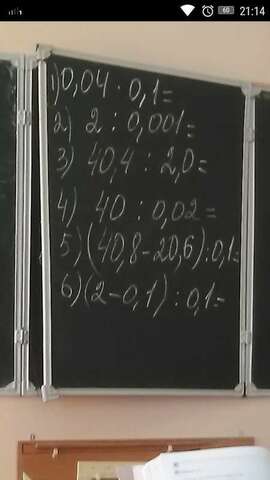 60 21:14
1) 0,04 · 0,1 =
2) 2 : 0,001 =
3) 40,4 : 2,0 =
4) 40 : 0,02 =
5) (40,8 - 20,6) : 0,1 =
6) (2 - 0,1) : 0,1 =